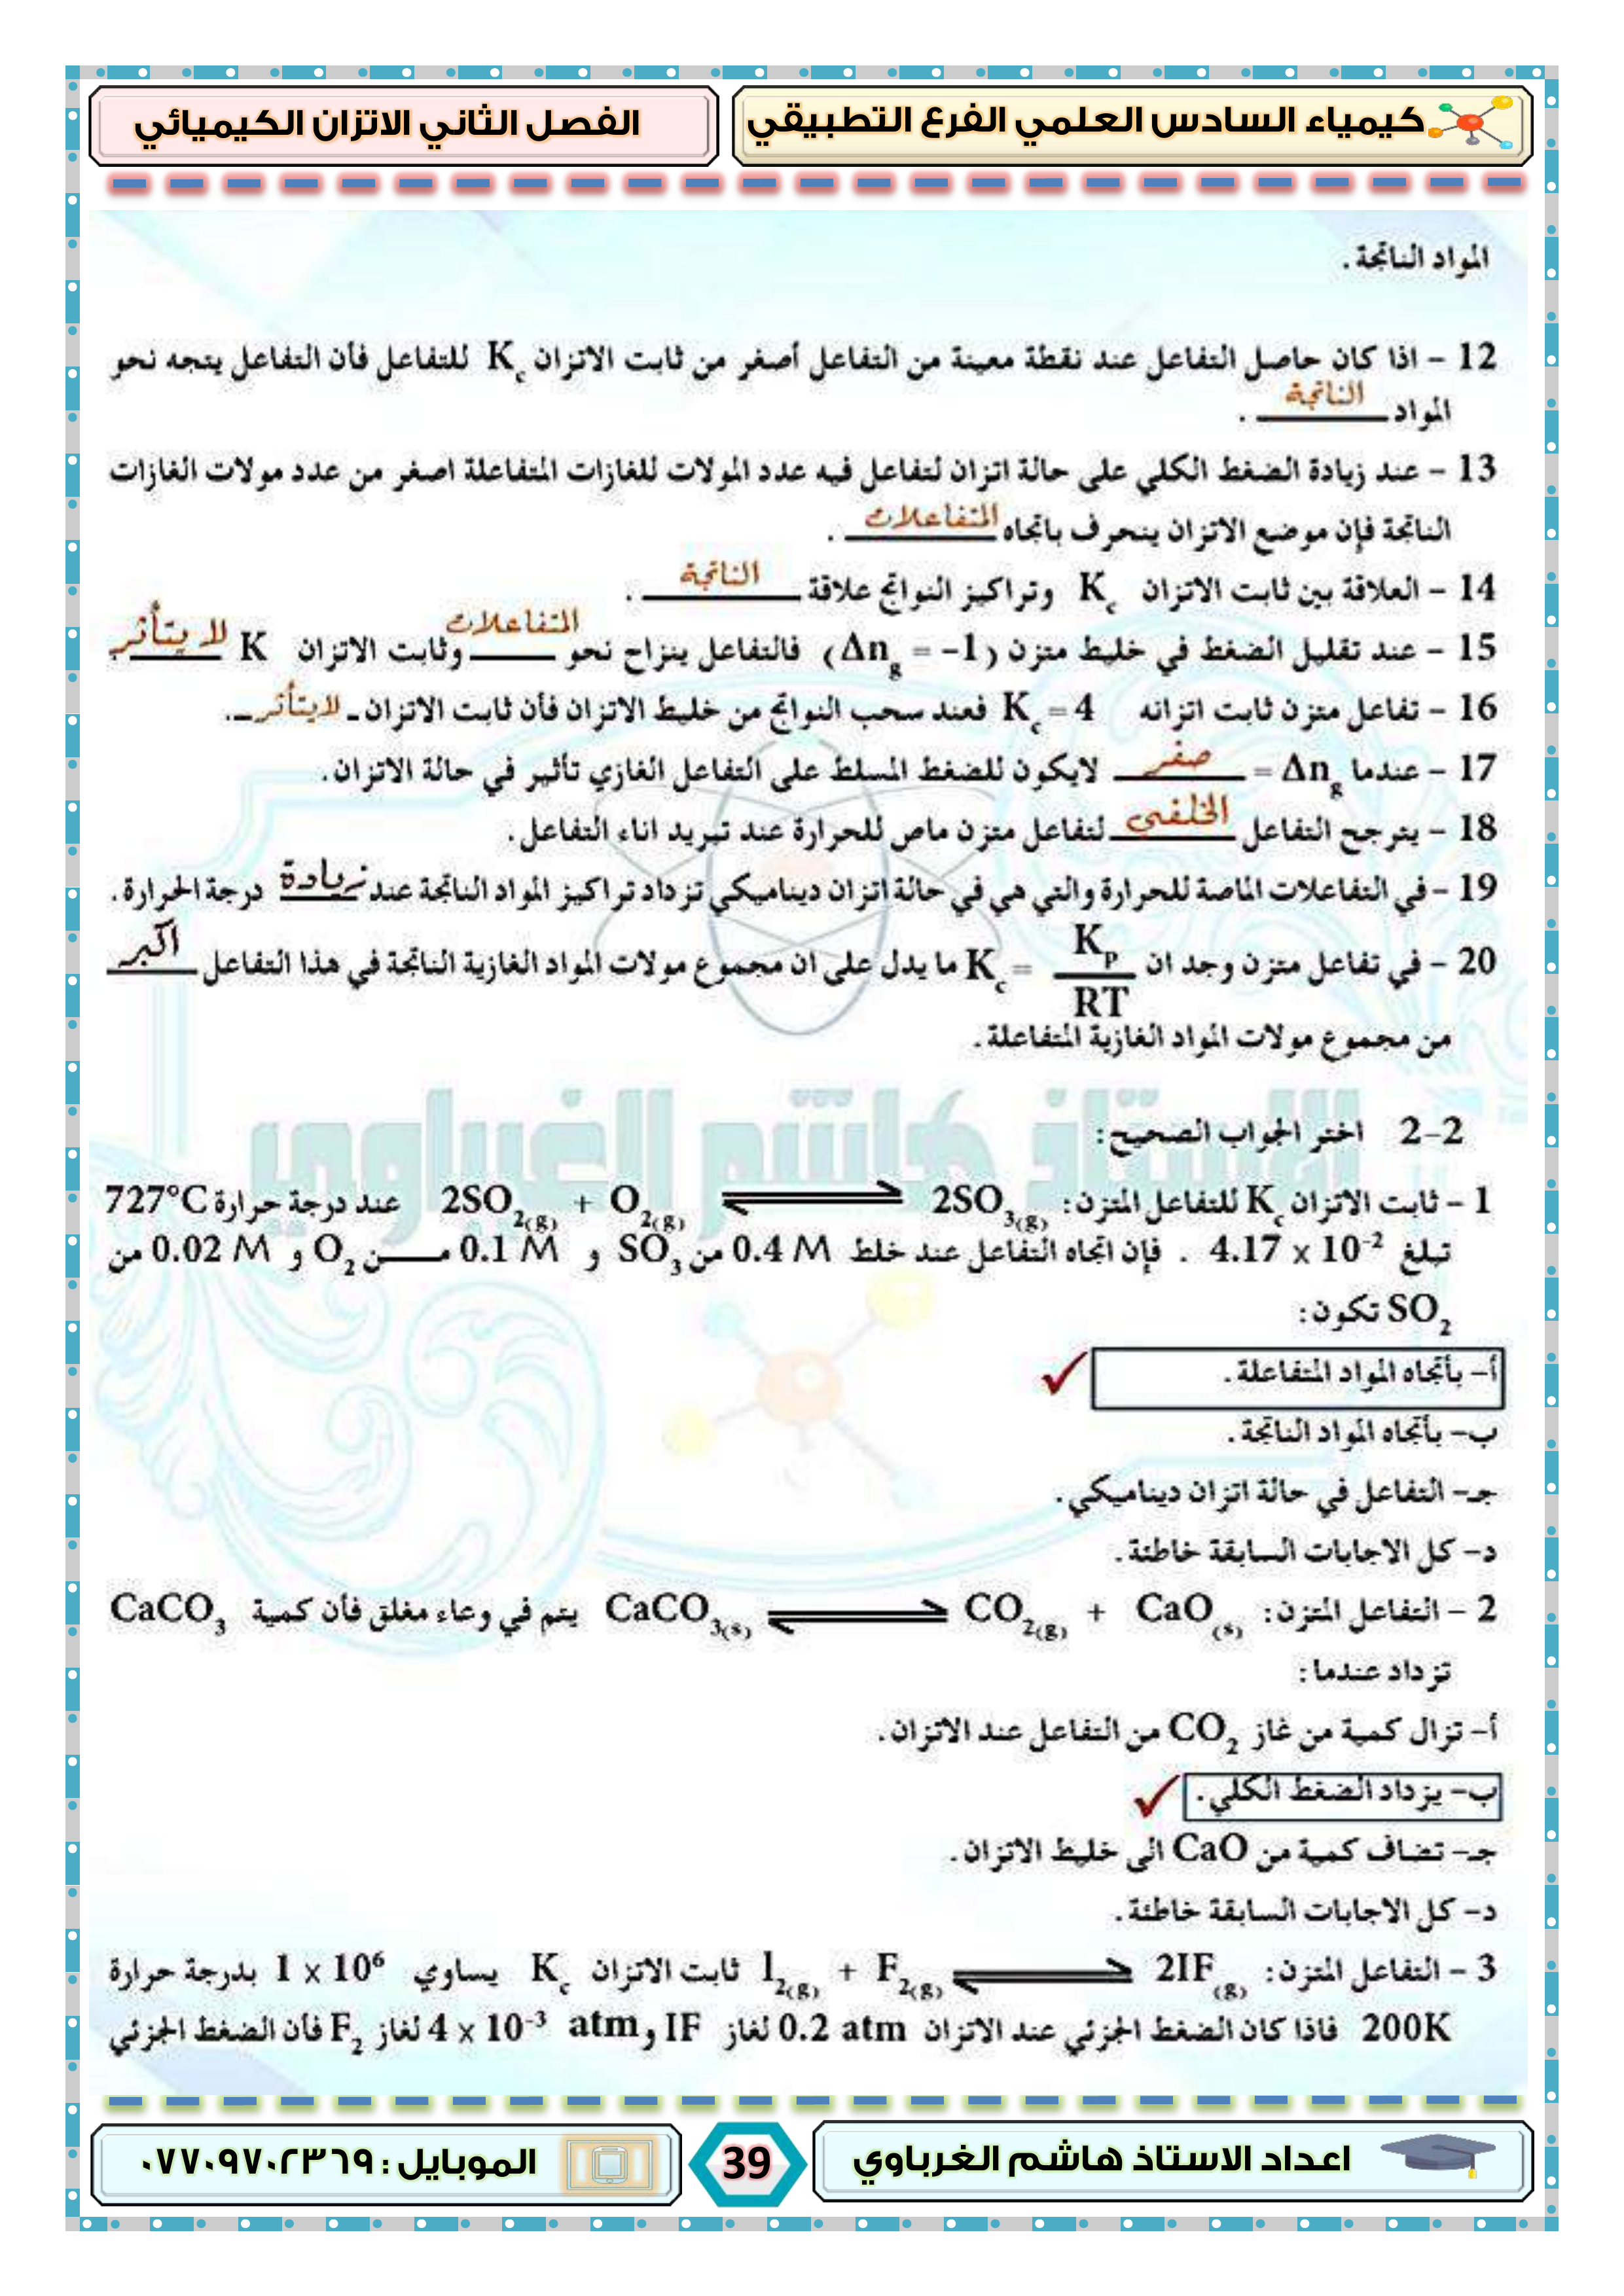 كيمياء السادس العلمي الفرع التطبيقي
الفصل الثاني الاتزان الكيميائي
المواد الناتجة .
12 – اذا كان حاصل التفاعل عند نقطة معينة من التفاعل أصغر من ثابت الاتزان Kc للتفاعل فأن التفاعل يتجه نحو
المواد الناتجة .
13 – عند زيادة الضغط الكلي على حالة اتزان لتفاعل فيه عدد المولات للغازات المتفاعلة اصغر من عدد مولات الغازات
الناتجة فإن موضع الاتزان ينحرف باتجاه المتفاعلات .
14 – العلاقة بين ثابت الاتزان Kc وتراكيز النواتج علاقة الناتجة .
15 – عند تقليل الضغط في خليط متزن (Δng = −1) فالتفاعل ينزاح نحو المتفاعلات وثابت الاتزان K لا يتأثر
16 – تفاعل متزن ثابت اتزانه Kc = 4 فعند سحب النواتج من خليط الاتزان فأن ثابت الاتزان لايتأثر .
17 – عندما Δng = صفر لايكون للضغط المسلط على التفاعل الغازي تأثير في حالة الاتزان.
18 – يترجح التفاعل الخلفي لتفاعل متزن ماص للحرارة عند تبريد اناء التفاعل.
19 – في التفاعلات الماصة للحرارة والتي هي في حالة اتزان ديناميكي تزداد تراكيز المواد الناتجة عند زيادة درجة الحرارة.
20 – في تفاعل متزن وجد ان Kc = Kp / RT ما يدل على ان مجموع مولات المواد الغازية الناتجة في هذا التفاعل اكبر
من مجموع مولات المواد الغازية المتفاعلة.
الاستاذ هاشم الغرباوي
2–2 اختر الجواب الصحيح:
1 – ثابت الاتزان Kc للتفاعل المتزن: 2SO2(g) + O2(g) ⇌ 2SO3(g) عند درجة حرارة 727°C
تبلغ 4.17 x 10⁻² . فإن اتجاه التفاعل عند خلط 0.4 M من SO3 و 0.1 M من O2 و 0.02 M من
SO2 تكون:
أ– بأتجاه المواد المتفاعلة. ✓
ب– بأتجاه المواد الناتجة.
جـ– التفاعل في حالة اتزان ديناميكي.
د– كل الاجابات السابقة خاطئة.
2 – التفاعل المتزن: CaCO3(s) ⇌ CO2(g) + CaO(s) يتم في وعاء مغلق فأن كمية CaCO3
تزداد عندما:
أ– تزال كمية من غاز CO2 من التفاعل عند الاتزان.
ب– يزداد الضغط الكلي. ✓
جـ– تضاف كمية من CaO الى خليط الاتزان.
د– كل الاجابات السابقة خاطئة.
3 – التفاعل المتزن: I2(g) + F2(g) ⇌ 2IF(g) ثابت الاتزان Kc يساوي 1 x 10⁶ بدرجة حرارة
200K فاذا كان الضغط الجزئي عند الاتزان 0.2 atm لغاز IF و 4 x 10⁻³ atm لغاز F2 فأن الضغط الجزئي
اعداد الاستاذ هاشم الغرباوي
39
الموبايل : ٠٧٧٠٩٧٠٢٣٦٩